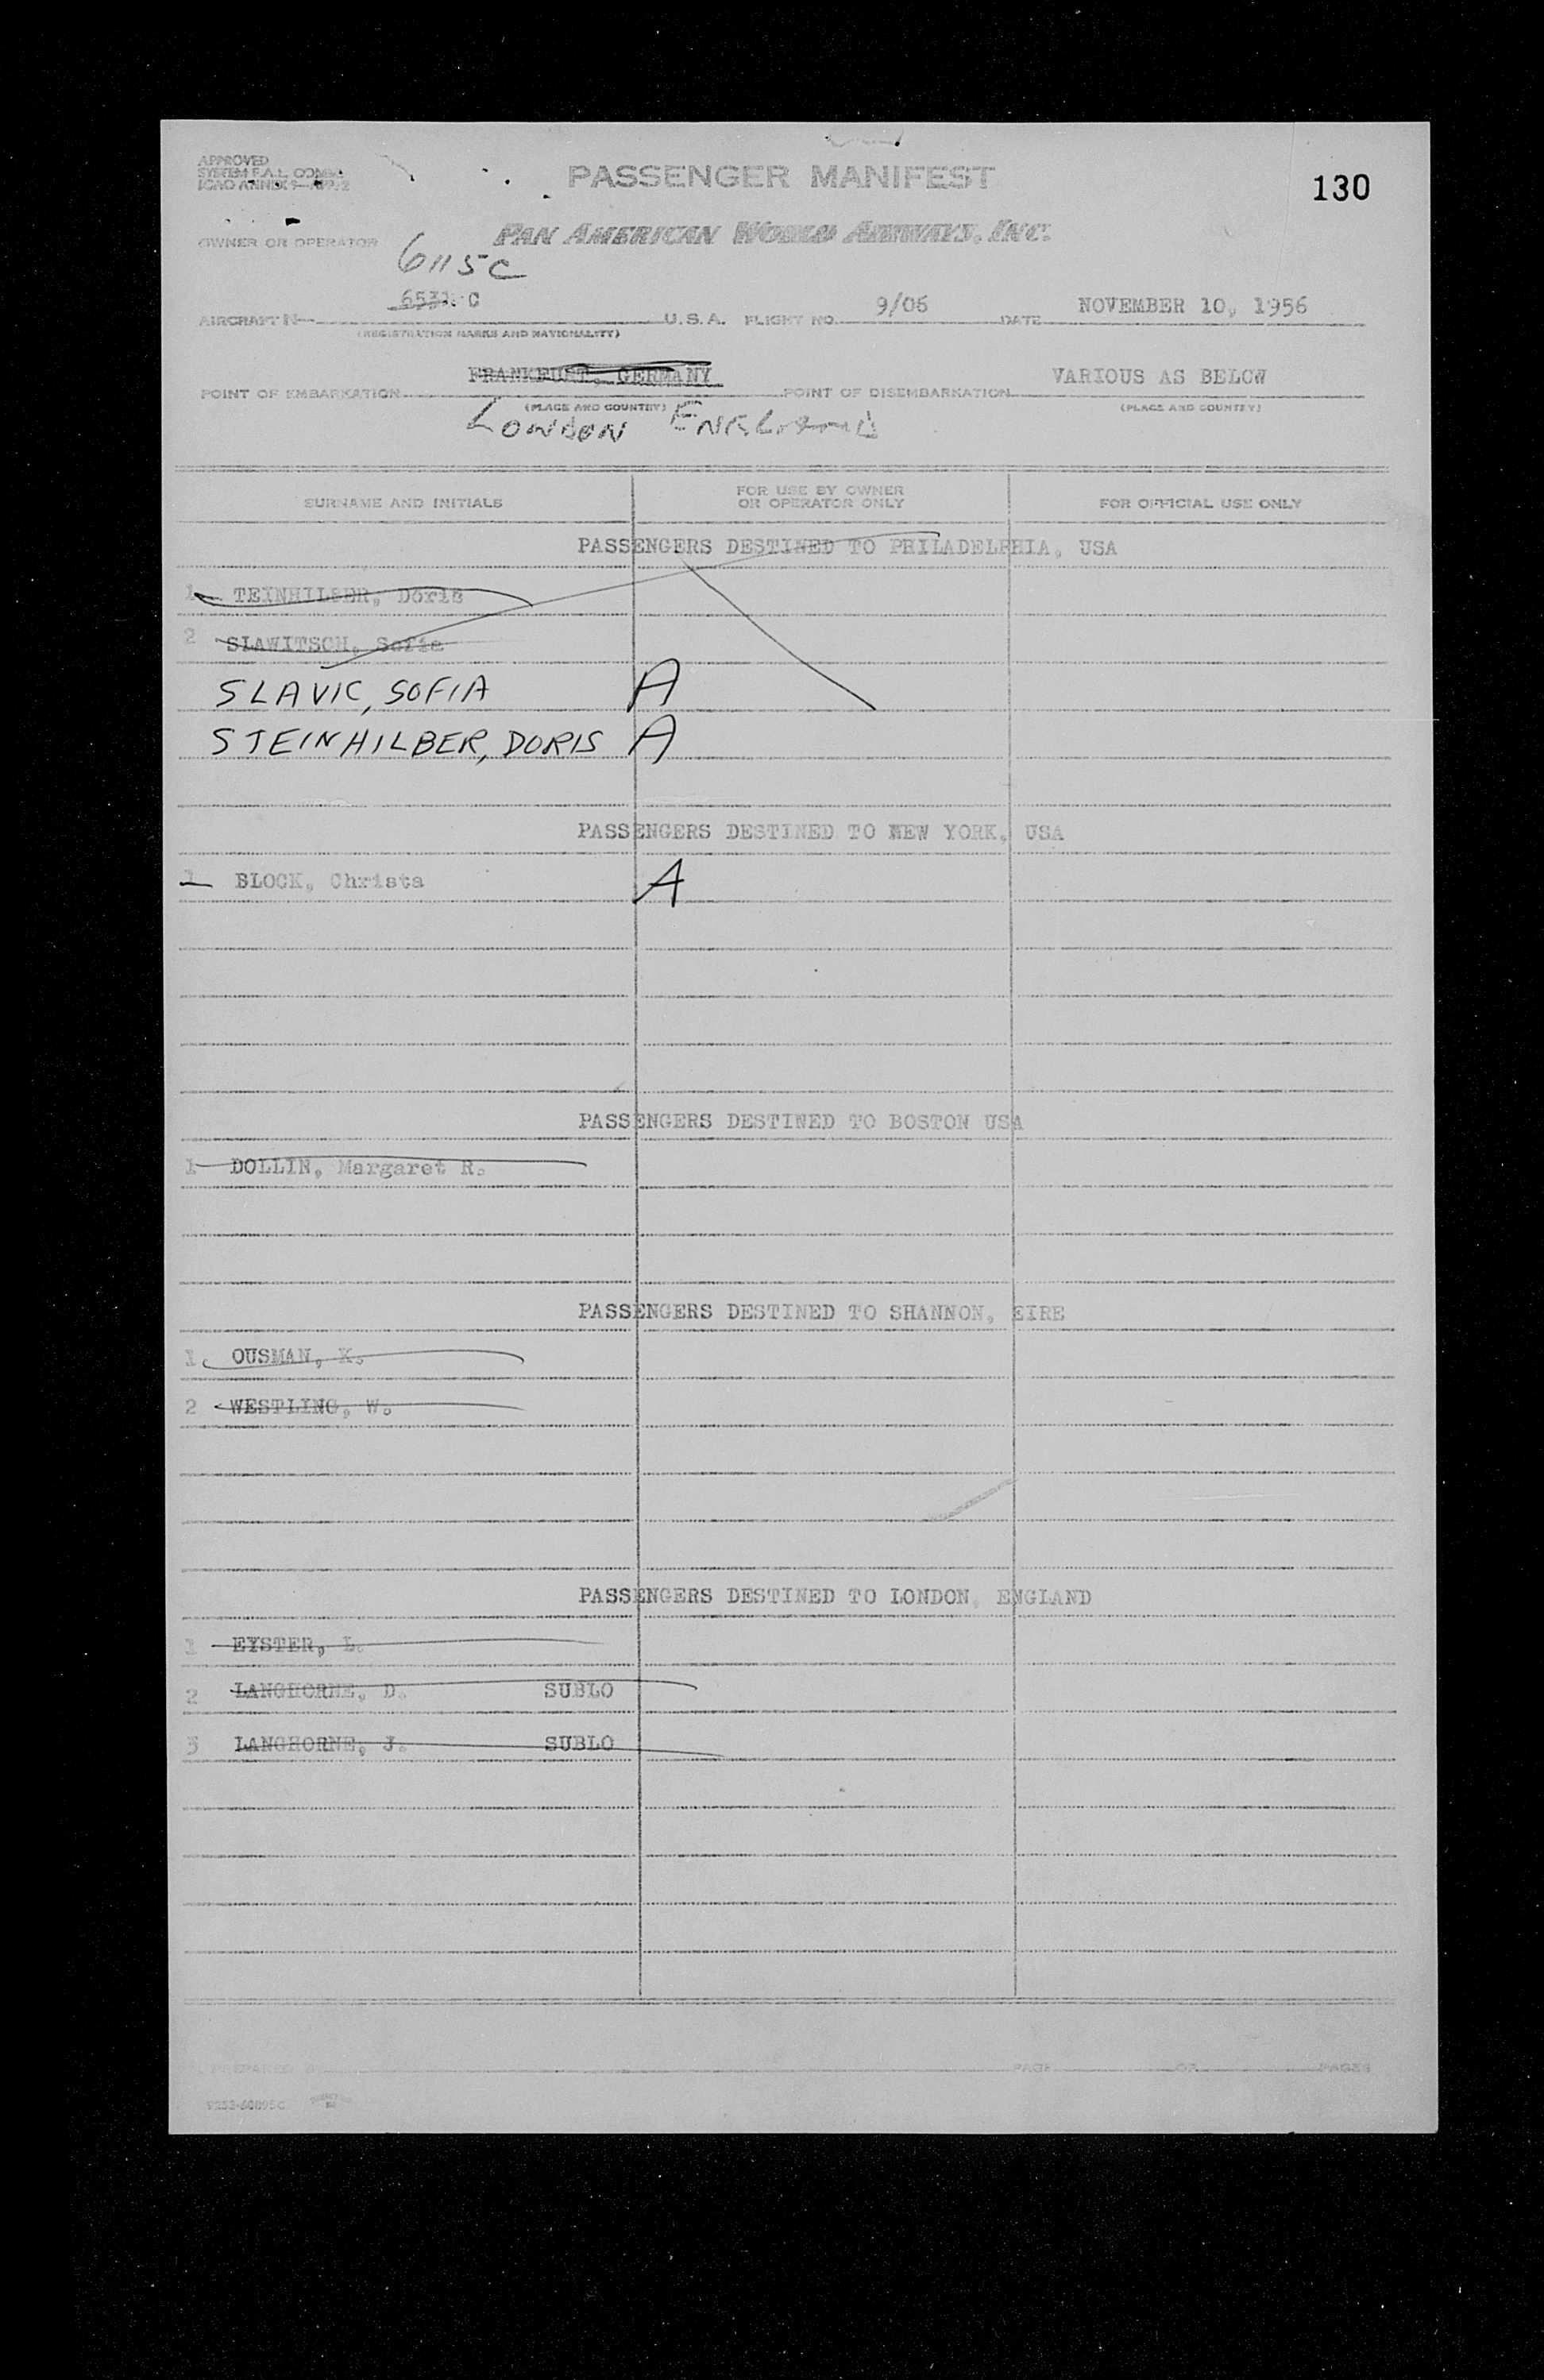 APPROVED
SYSTEM F.A.L. COMM.
ICAO ANNEX 9—APP. 2
PASSENGER MANIFEST
130
OWNER OR OPERATOR
PAN AMERICAN WORLD AIRWAYS, INC.
6115C
6531 C
AIRCRAFT N— U.S.A. FLIGHT NO. 9/06 DATE NOVEMBER 10, 1956
(REGISTRATION MARKS AND NATIONALITY)
POINT OF EMBARKATION FRANKFURT, GERMANY POINT OF DISEMBARKATION VARIOUS AS BELOW
(PLACE AND COUNTRY) (PLACE AND COUNTRY)
LONDON ENGLAND
SURNAME AND INITIALS FOR USE BY OWNER OR OPERATOR ONLY FOR OFFICIAL USE ONLY
PASSENGERS DESTINED TO PHILADELPHIA, USA
1 TEINHILBER, Doris
2 SLAWITSCH, Sofie
SLAVIC, SOFIA A
STEINHILBER, DORIS A
PASSENGERS DESTINED TO NEW YORK, USA
1 BLOCK, Christa A
PASSENGERS DESTINED TO BOSTON USA
1 DOLLIN, Margaret R.
PASSENGERS DESTINED TO SHANNON, EIRE
1 OUSMAN, K.
2 WESTLING, W.
PASSENGERS DESTINED TO LONDON, ENGLAND
1 EYSTER, L.
2 LANGHORNE, D. SUBLO
3 LANGHORNE, J. SUBLO
PREPARED B PAGE OF PAGES